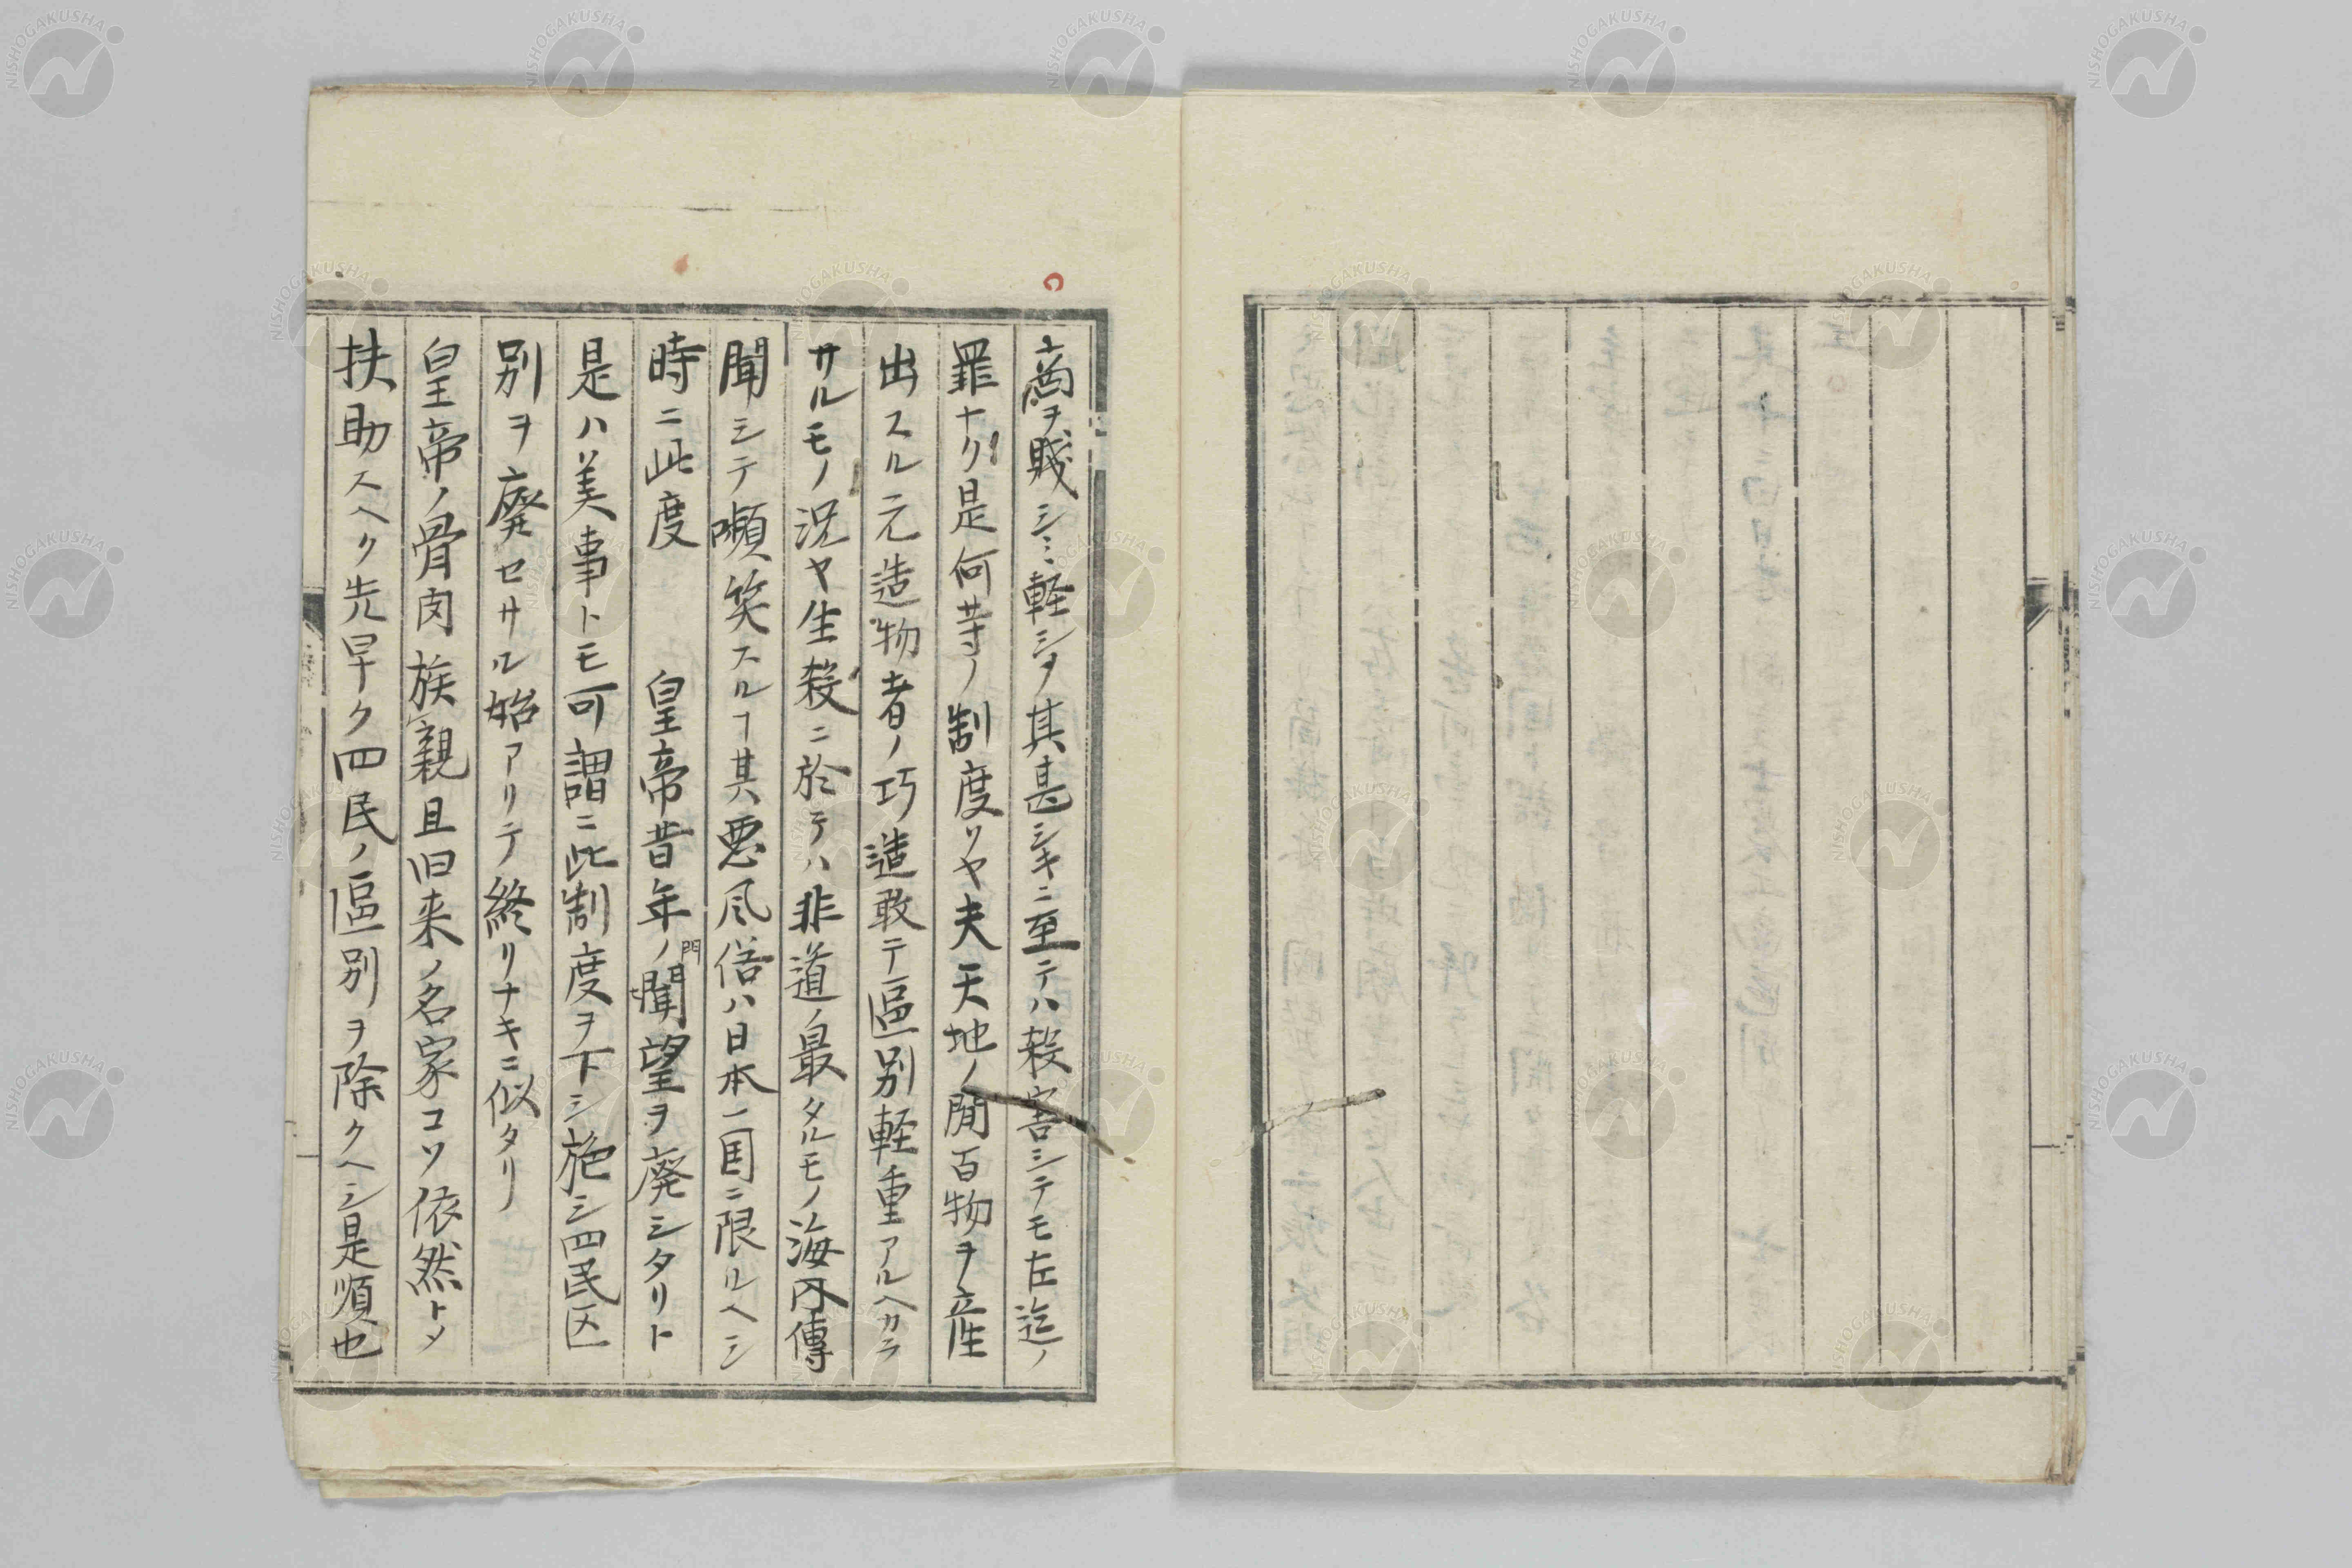 商ヲ賤シミ軽シメ其甚シキニ至テハ殺害シテモ左迄ノ
罪ナク是何等ノ制度リヤ夫天地ノ間百物ヲ産
出スル元造物者ノ巧造敢テ區別軽重アルヘカラ
サルモノ況ヤ生殺ニ於テハ非道ノ最タルモノ海内傳
聞シテ嚬笑スルヿ其悪风俗ハ日本一国ニ限ルヘシ
時ニ此度 皇帝昔年ノ聞望ヲ廃シタリト
門
是ハ美事トモ可謂ニ此制度ヲ下シ施シ四民区
別ヲ廃セサル始アリテ終リナキニ似タリ
皇帝ノ骨肉族親且旧来ノ名家コソ依然トメ
扶助スヘク先早ク四民ノ區別ヲ除クヘシ是順也
NISHOGAKUSHA